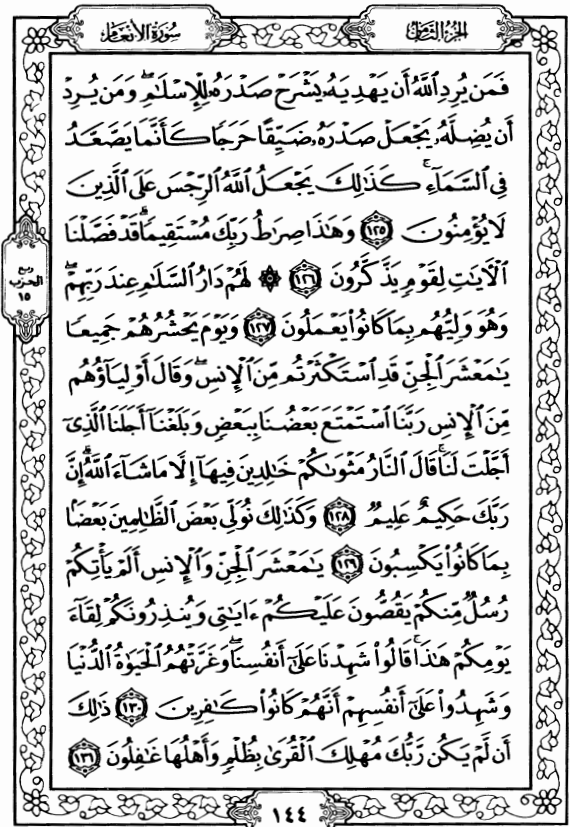 سورة الأنعام
الجزء الثامن
فَمَن يُرِدِ ٱللَّهُ أَن يَهْدِيَهُۥ يَشْرَحْ صَدْرَهُۥ لِلْإِسْلَٰمِ ۖ وَمَن يُرِدْ
أَن يُضِلَّهُۥ يَجْعَلْ صَدْرَهُۥ ضَيِّقًا حَرَجًا كَأَنَّمَا يَصَّعَّدُ
فِى ٱلسَّمَآءِ ۚ كَذَٰلِكَ يَجْعَلُ ٱللَّهُ ٱلرِّجْسَ عَلَى ٱلَّذِينَ
لَا يُؤْمِنُونَ ١٢٥ وَهَٰذَا صِرَٰطُ رَبِّكَ مُسْتَقِيمًا ۗ قَدْ فَصَّلْنَا
ٱلْءَايَٰتِ لِقَوْمٍ يَذَّكَّرُونَ ١٢٦ ۞ لَهُمْ دَارُ ٱلسَّلَٰمِ عِندَ رَبِّهِمْ ۖ
وَهُوَ وَلِيُّهُم بِمَا كَانُوا۟ يَعْمَلُونَ ١٢٧ وَيَوْمَ يَحْشُرُهُمْ جَمِيعًا
يَٰمَعْشَرَ ٱلْجِنِّ قَدِ ٱسْتَكْثَرْتُم مِّنَ ٱلْإِنسِ ۖ وَقَالَ أَوْلِيَآؤُهُم
مِّنَ ٱلْإِنسِ رَبَّنَا ٱسْتَمْتَعَ بَعْضُنَا بِبَعْضٍ وَبَلَغْنَآ أَجَلَنَا ٱلَّذِىٓ
أَجَّلْتَ لَنَا ۚ قَالَ ٱلنَّارُ مَثْوَىٰكُمْ خَٰلِدِينَ فِيهَآ إِلَّا مَا شَآءَ ٱللَّهُ ۗ إِنَّ
رَبَّكَ حَكِيمٌ عَلِيمٌ ١٢٨ وَكَذَٰلِكَ نُوَلِّى بَعْضَ ٱلظَّٰلِمِينَ بَعْضًۢا
بِمَا كَانُوا۟ يَكْسِبُونَ ١٢٩ يَٰمَعْشَرَ ٱلْجِنِّ وَٱلْإِنسِ أَلَمْ يَأْتِكُمْ
رُسُلٌ مِّنكُمْ يَقُصُّونَ عَلَيْكُمْ ءَايَٰتِى وَيُنذِرُونَكُمْ لِقَآءَ
يَوْمِكُمْ هَٰذَا ۚ قَالُوا۟ شَهِدْنَا عَلَىٰٓ أَنفُسِنَا ۖ وَغَرَّتْهُمُ ٱلْحَيَوٰةُ ٱلدُّنْيَا
وَشَهِدُوا۟ عَلَىٰٓ أَنفُسِهِمْ أَنَّهُمْ كَانُوا۟ كَٰفِرِينَ ١٣٠ ذَٰلِكَ
أَن لَّمْ يَكُن رَّبُّكَ مُهْلِكَ ٱلْقُرَىٰ بِظُلْمٍ وَأَهْلُهَا غَٰفِلُونَ ١٣١
ربع
الحزب
١٥
١٤٤